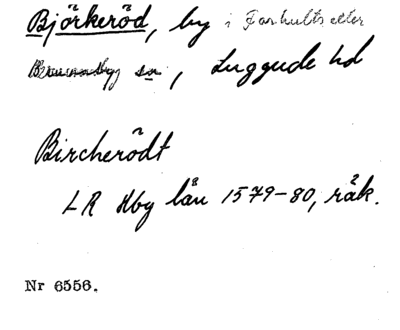 Björkeröd, by i Farhults eller
Brunnby sn, Luggude hd
Bircherödt
LR Hbg län 1579-80, räk.
Nr 6556.